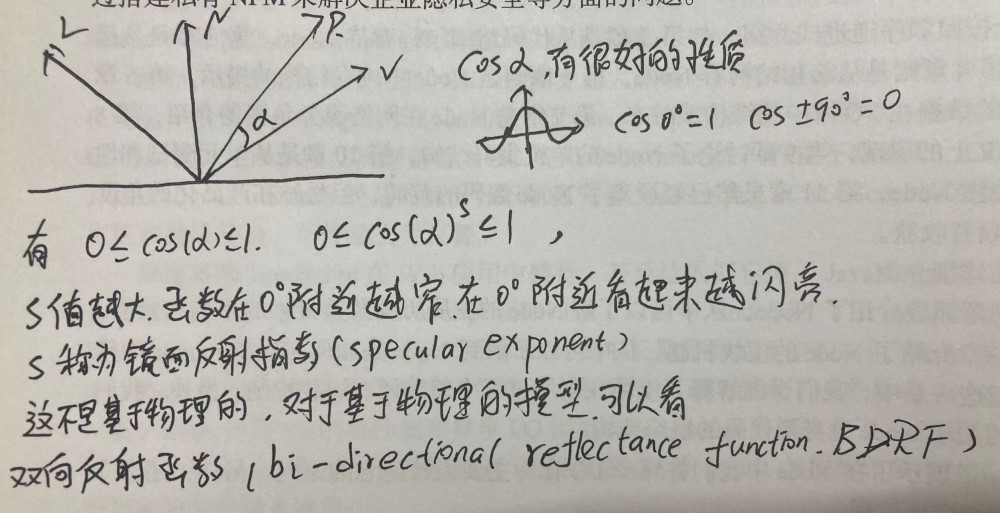 过搭建私有 NPM 来解决企业隐私安全等方面的问题。
L N R V α
cosα 有很好的性质
cos 0° = 1 cos ±90° = 0
有 0 ≤ cos(α) ≤ 1. 0 ≤ cos(α)^s ≤ 1 ,
S值越大, 函数在0°附近越窄, 在0°附近看起来越闪亮.
S 称为镜面反射指数 (specular exponent)
这不是基于物理的, 对于基于物理的模型, 可以看
双向反射函数 (bi-directional reflectance function. BDRF)